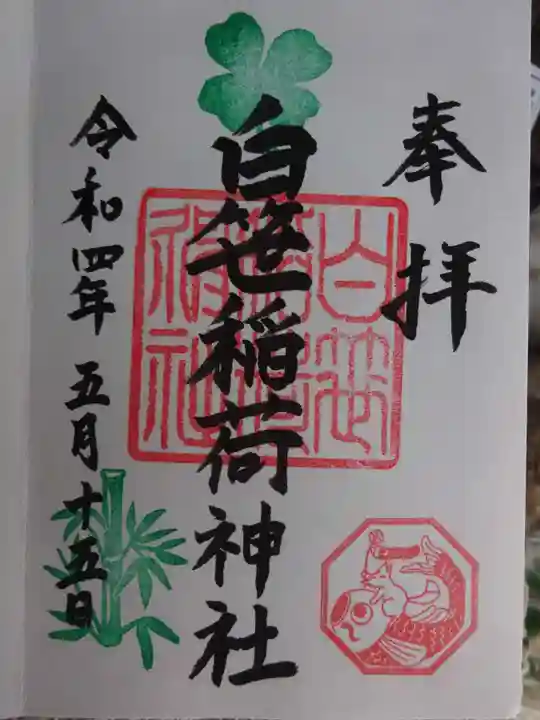 奉拝
白笹稲荷神社
令和四年五月十五日
白笹
稲荷
神社